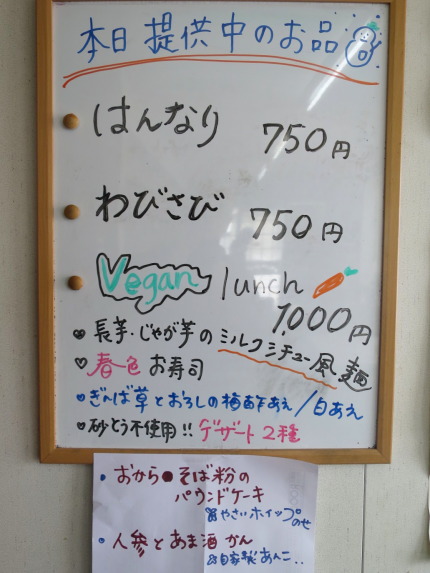 本日提供中のお品
はんなり 750円
わびさび 750円
Vegan lunch
1,000円
長芋・じゃが芋のミルクシチュー風麺
春色お寿司
ぎんば草とおろしの梅酢あえ/白あえ
砂とう不使用!! デザート2種
・おから そば粉の
パウンドケーキ
やさいホイップのせ
・人参とあま酒かん
自家製あんこ..